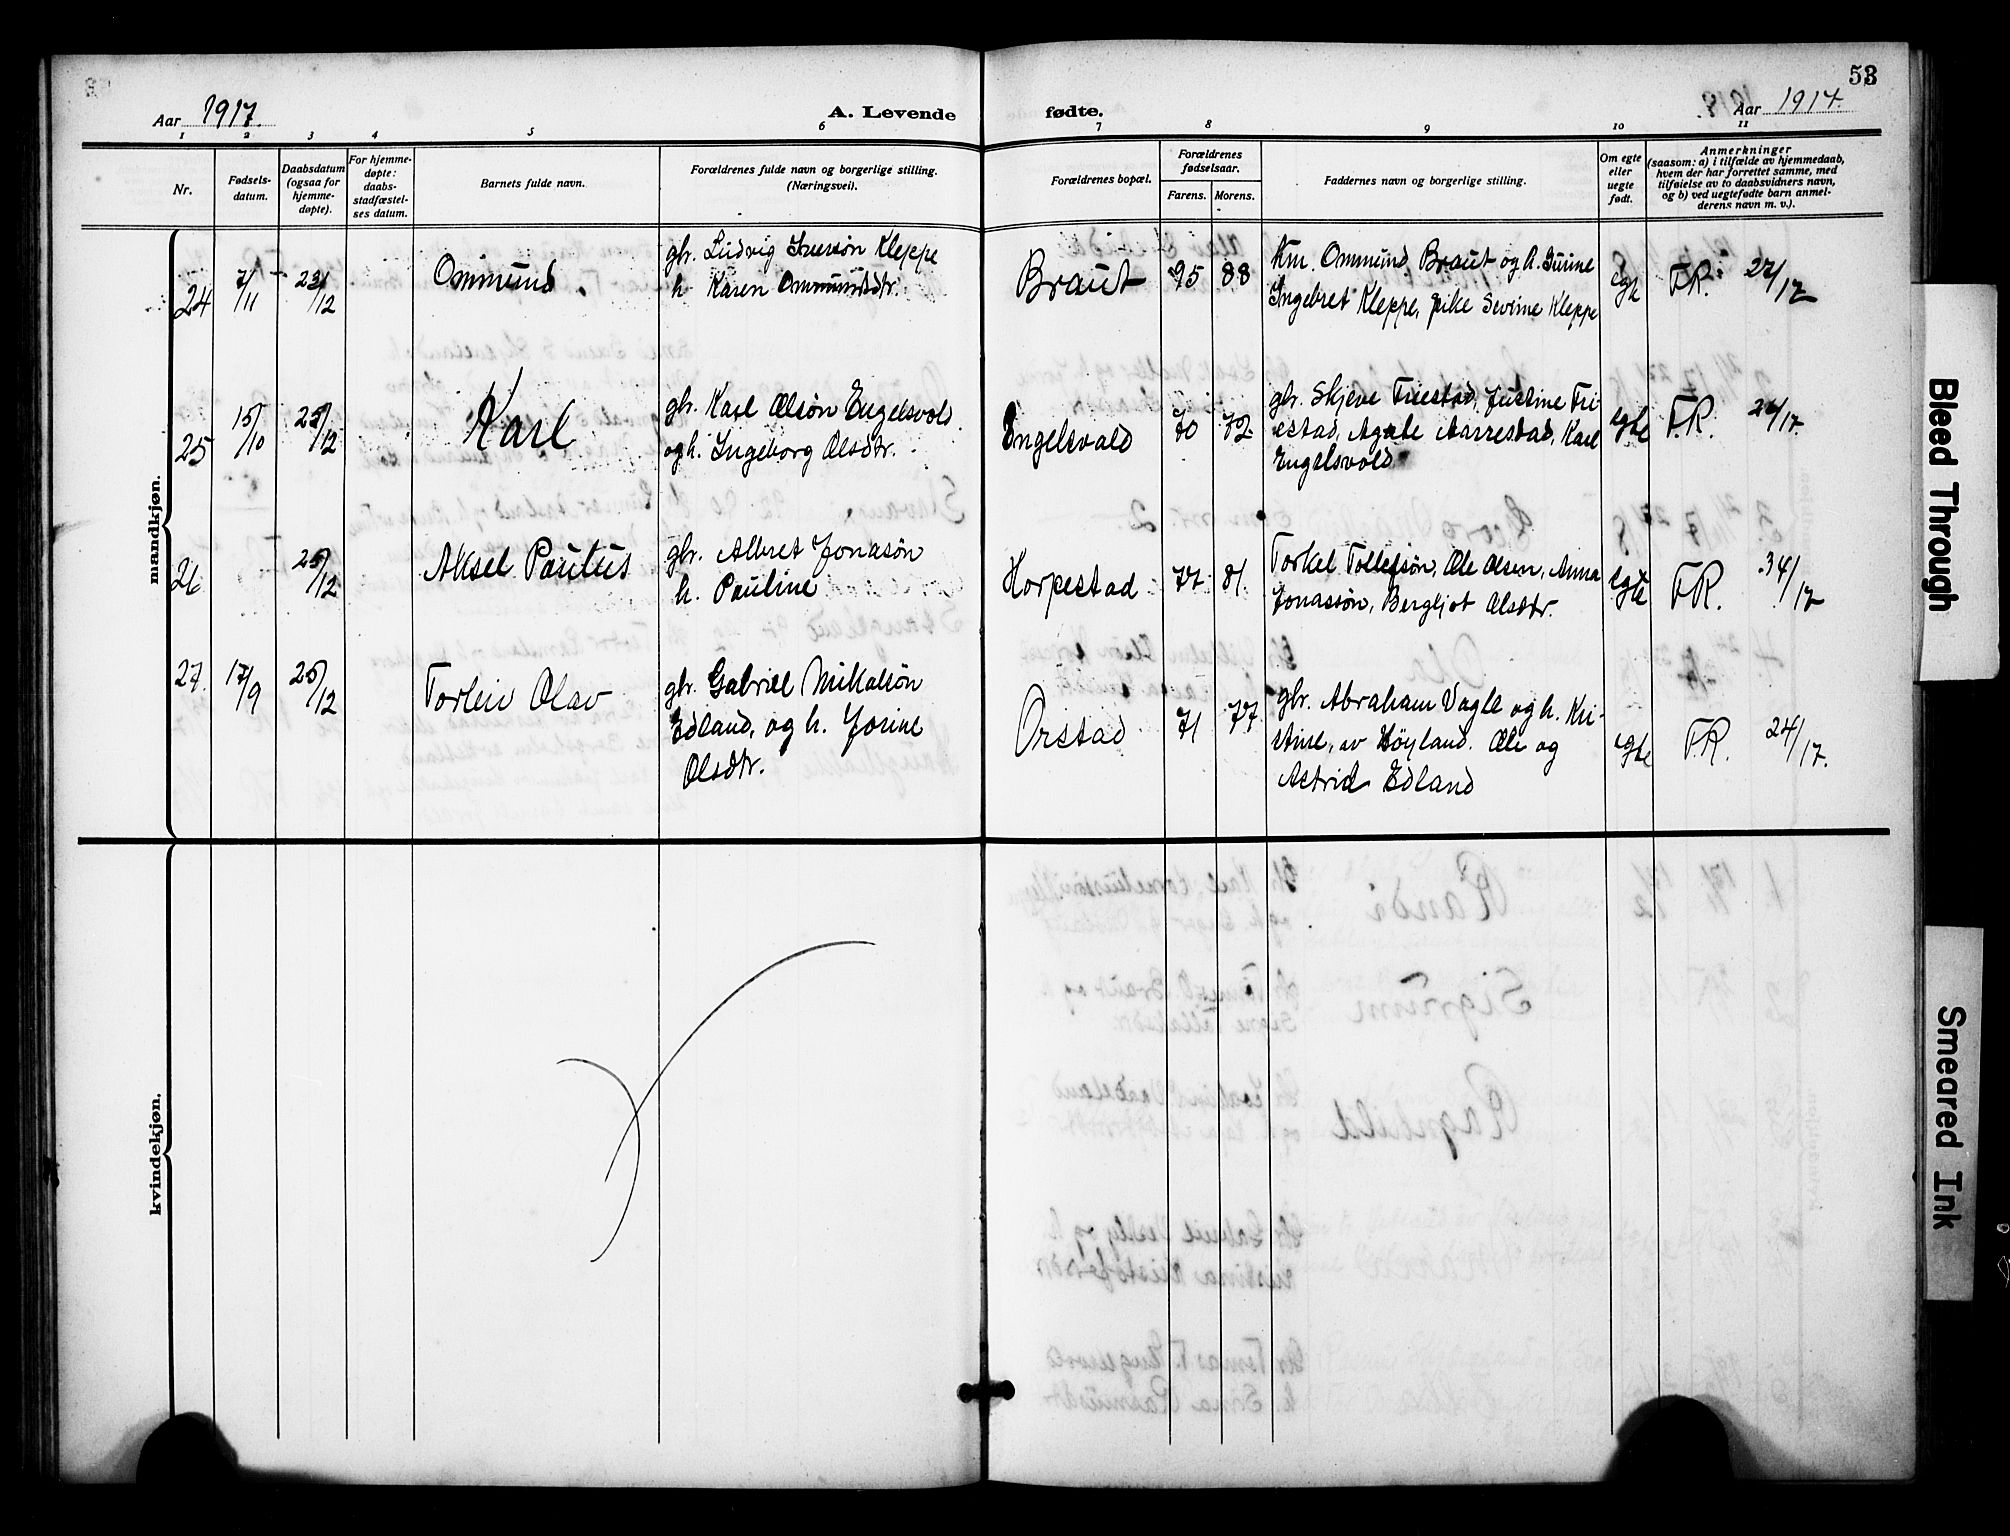 53
Aar 1917.
A. Levende
fødte.
Aar 1917.
1 2 3 4 5 6 7 8 9 10 11
Nr.
Fødsels-
datum.
Daabsdatum
(ogsaa for
hjemme-
døpte).
For hjemme-
døpte:
daabs-
stadfæstel-
ses datum.
Barnets fulde navn.
Forældrenes fulde navn og borgerlige stilling.
(Næringsvei).
Forældrenes bopæl.
Forældrenes
fødselsaar.
Farens. Morens.
Faddernes navn og borgerlige stilling.
Om egte
eller
uegte
født.
Anmerkninger
(saasom: a) i tilfælde av hjemmedaab,
hvem der har forrettet samme, med
tilføielse av to daabsvidners navn,
og b) ved uegtefødte barn anmel-
derens navn m. v.).
mandkjøn.
24 7/11 23/12 Ommund.
gbr. Ludvig Iverson Kleppe
h. Karen Ommundsdtr.
Braut 95 88
Km. Ommund Braut og h. Gurine
Ingebret Kleppe, pike Severine Kleppe
egte F.R. 27/12
25 15/10 25/12 Karl
gbr. Karl Olsön Engelsvold
og h. Ingeborg Olsdtr.
Engelsvold 70 72
gbr. Skjeve Friestad, Justine Fri-
estad, Agate Aarrestad, Karl
Engelsvold
egte F.R. 26/17.
26 25/12 Aksel Paulus
gbr. Albret Jonasön
h. Pauline
Horpestad 77 81
Torkel Tollefsön, Ole Olsen, Anna
Jonassön, Bergljot Olsdtr.
egte F.R. 34/17
27. 17/9 25/12 Torleiv Olav
gbr. Gabriel Mikalsön
Edland, og h. Jorine
Olsdtr.
Orstad 71 77.
gbr. Abraham Vagle og h. Kri-
stine, av Höyland. Ole og
Astrid Edland
egte F.R. 24/17.
kvindekjøn.
Bleed Through
Smeared Ink